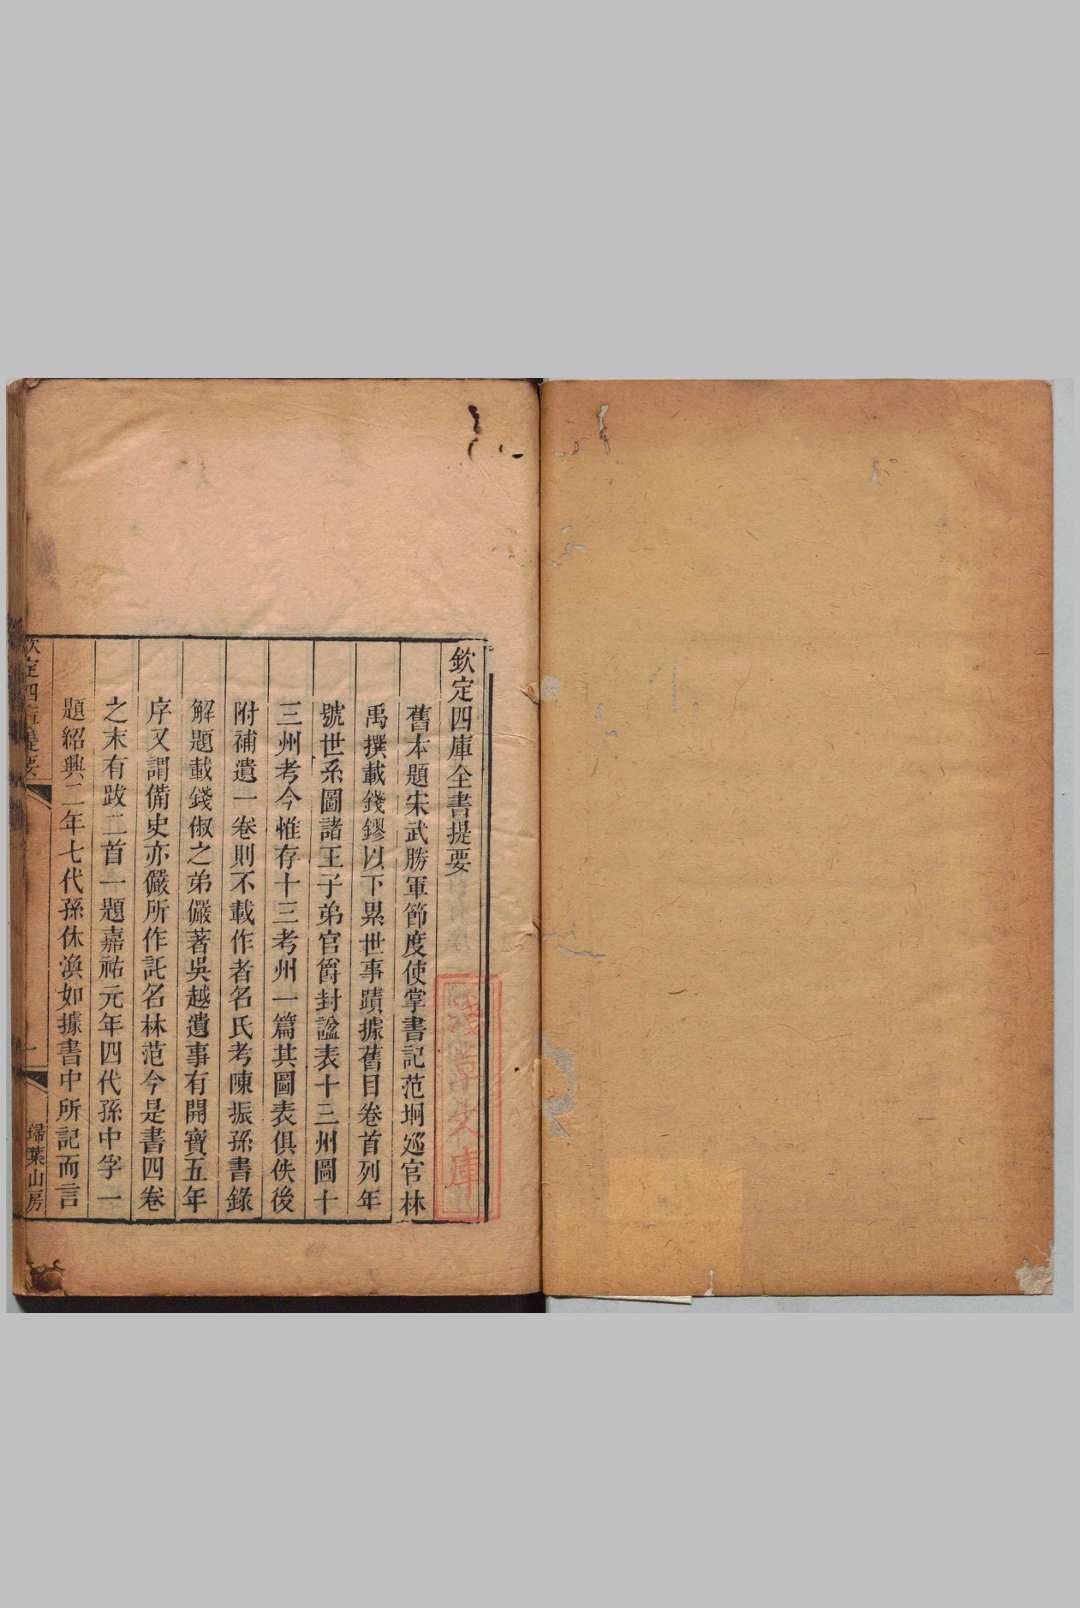 欽定四庫全書提要
舊本題宋武勝軍節度使掌書記范坰巡官林
禹撰載錢鏐以下累世事蹟據舊目卷首列年
號世系圖諸王子弟官爵封諡表十三州圖十
三州考今惟存十三考州一篇其圖表俱佚後
附補遺一卷則不載作者名氏考陳振孫書錄
解題載錢俶之弟儼著吳越遺事有開寶五年
序又謂備史亦儼所作託名林范今是書四卷
之末有跋二首一題嘉祐元年四代孫中孚一
題紹興二年七代孫休渙如據書中所記而言
欽定四庫提要
一
掃葉山房